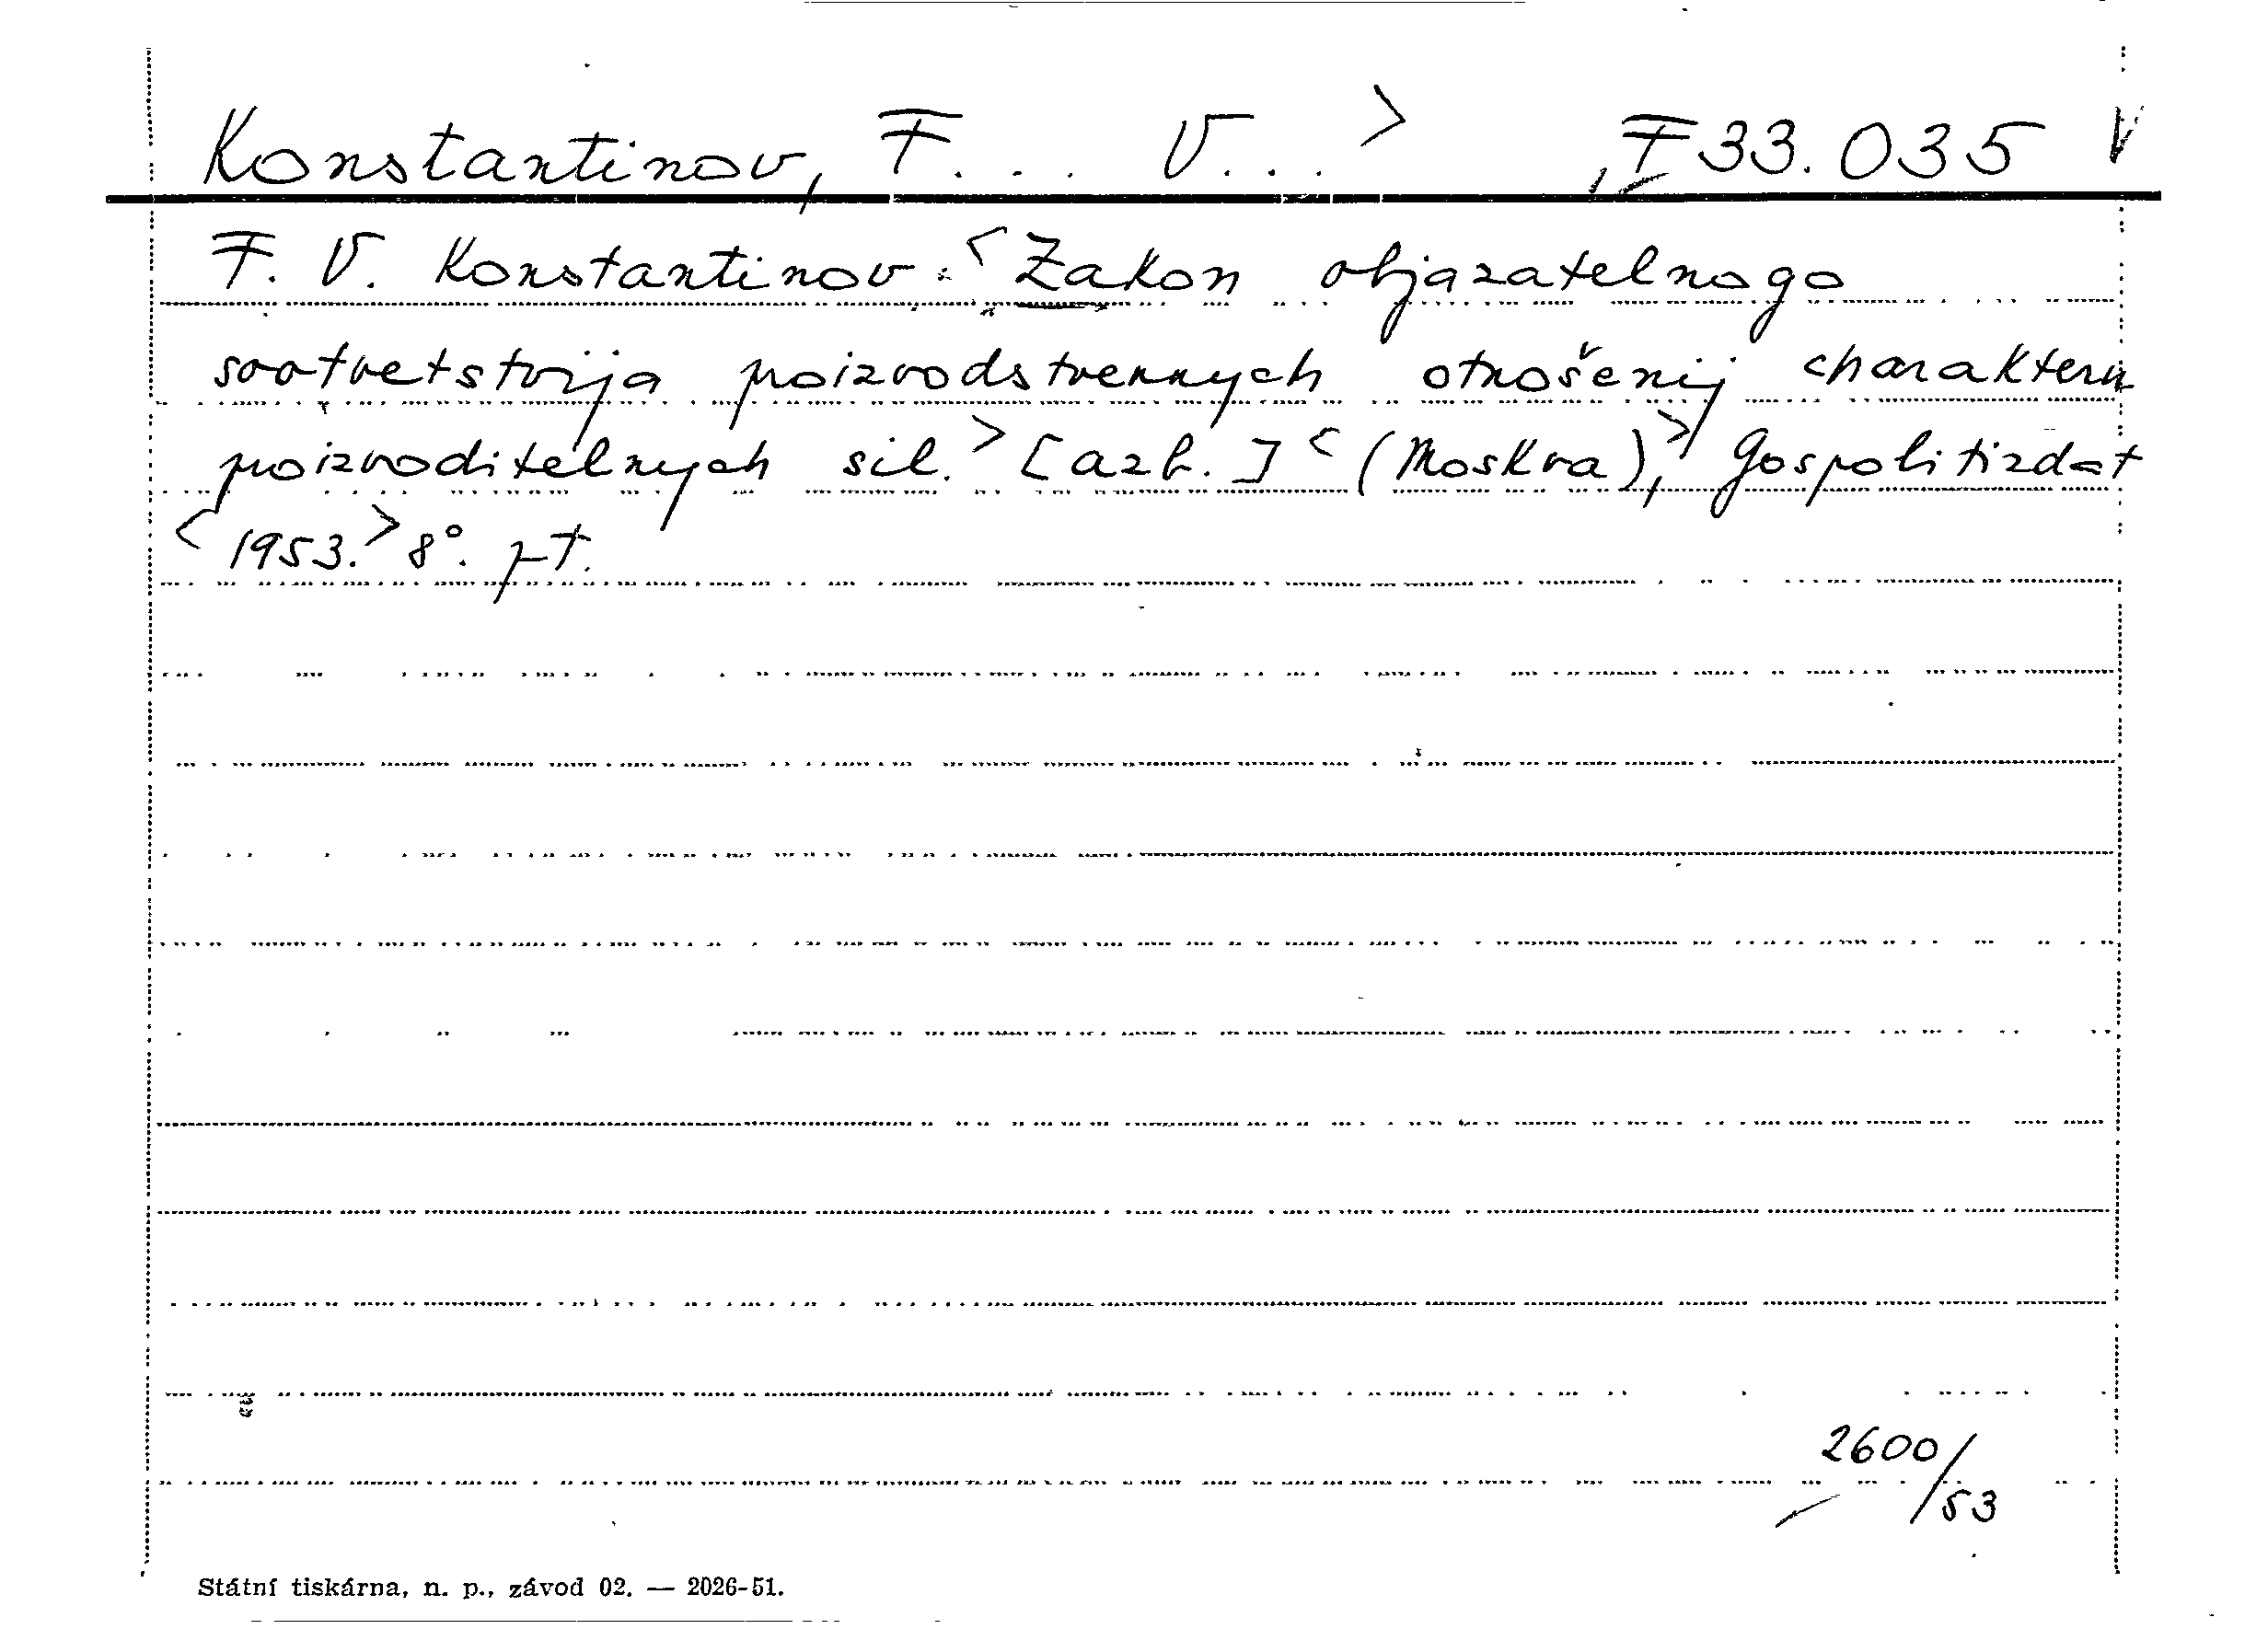 Konstantinov, F... V...> F 33.035 V
F. V. Konstantinov: <Zakon objazatelnogo
sootvetstvija proizvodstvennych otnošenij charakteru
proizvoditelnych sil.> [azb.] <(Moskva),> Gospolitizdat
<1953.> 8°. pt.
2600/53
Státní tiskárna, n. p., závod 02. — 2026-51.